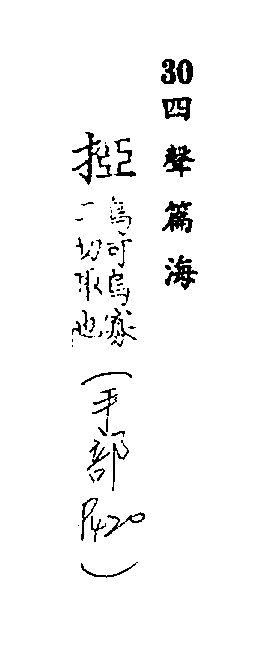 30四聲篇海
掗
烏可烏寡
二切取也
(手部P420)